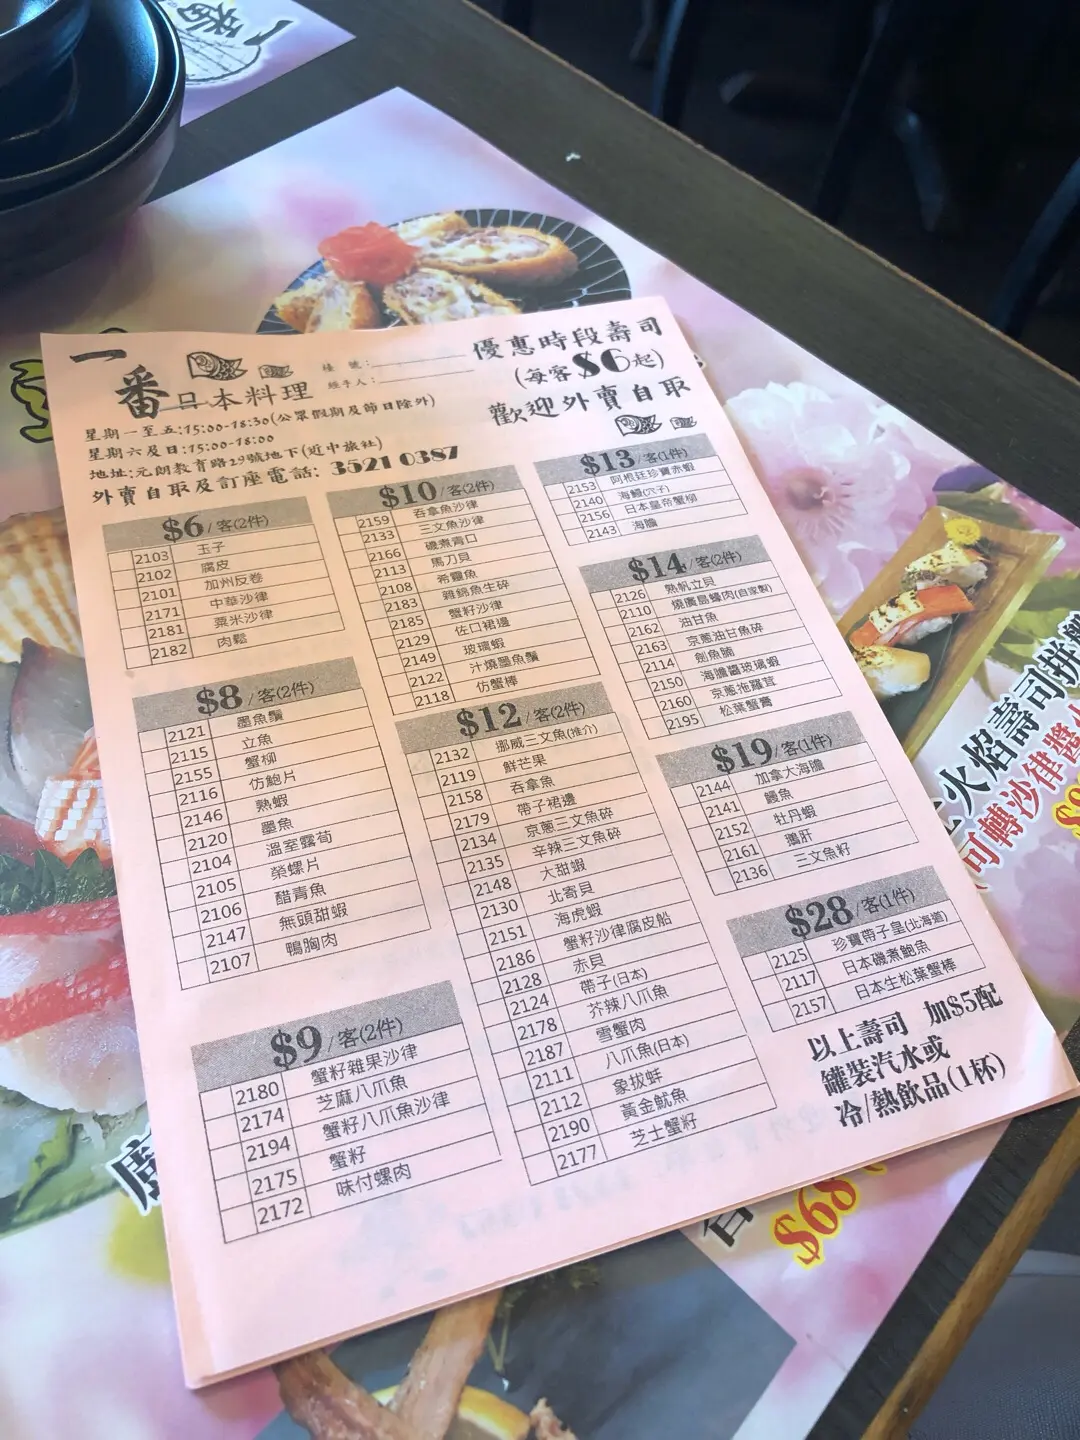 一番日本料理
檯 號：
經手人：
優惠時段壽司
(每客$6起)
歡迎外賣自取
星期一至五:15:00-18:30(公眾假期及節日除外)
星期六及日:15:00-18:00
地址:元朗教育路29號地下(近中旅社)
外賣自取及訂座電話: 3521 0387
$6/客(2件)
2103 玉子
2102 腐皮
2101 加州反卷
2171 中華沙律
2181 粟米沙律
2182 肉鬆
$8/客(2件)
2121 墨魚鬚
2115 立魚
2155 蟹柳
2116 仿鮑片
2146 熟蝦
2120 墨魚
2104 溫室露荀
2105 榮螺片
2106 醋青魚
2147 無頭甜蝦
2107 鴨胸肉
$9/客(2件)
2180 蟹籽雜果沙律
2174 芝麻八爪魚
2194 蟹籽八爪魚沙律
2175 蟹籽
2172 味付螺肉
$10/客(2件)
2159 吞拿魚沙律
2133 三文魚沙律
2166 磯煮青口
2113 馬刀貝
2108 希靈魚
2183 雜錦魚生碎
2185 蟹籽沙律
2129 佐口裙邊
2149 玻璃蝦
2122 汁燒墨魚鬚
2118 仿蟹棒
$12/客(2件)
2132 挪威三文魚(推介)
2119 鮮芒果
2158 吞拿魚
2179 帶子裙邊
2134 京蔥三文魚碎
2135 辛辣三文魚碎
2148 大甜蝦
2130 北寄貝
2151 海虎蝦
2186 蟹籽沙律腐皮船
2128 赤貝
2124 帶子(日本)
2178 芥辣八爪魚
2187 雪蟹肉
2111 八爪魚(日本)
2112 象拔蚌
2190 黃金魷魚
2177 芝士蟹籽
$13/客(1件)
2153 阿根廷珍寶赤蝦
2140 海鰻(穴子)
2156 日本皇帝蟹柳
2143 海膽
$14/客(2件)
2126 熟帆立貝
2110 燒廣島蠔肉(自家製)
2162 油甘魚
2163 京蔥油甘魚碎
2114 劍魚腩
2150 海膽醬玻璃蝦
2160 京蔥拖羅茸
2195 松葉蟹膏
$19/客(1件)
2144 加拿大海膽
2141 鰻魚
2152 牡丹蝦
2161 鵝肝
2136 三文魚籽
$28/客(1件)
2125 珍寶帶子皇(北海道)
2117 日本磯煮鮑魚
2157 日本生松葉蟹棒
以上壽司 加$5配
罐裝汽水或
冷/熱飲品(1杯)
火焰壽司拼
可轉沙律醬
$68
一番